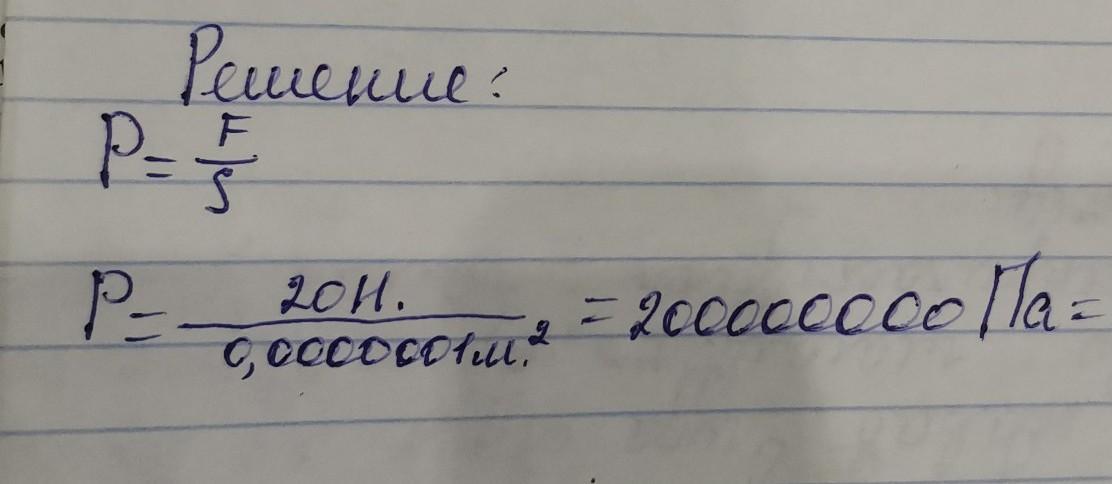 Решение:
P = F/S
P = 20Н. / 0,0000001м.² = 200000000 Па =